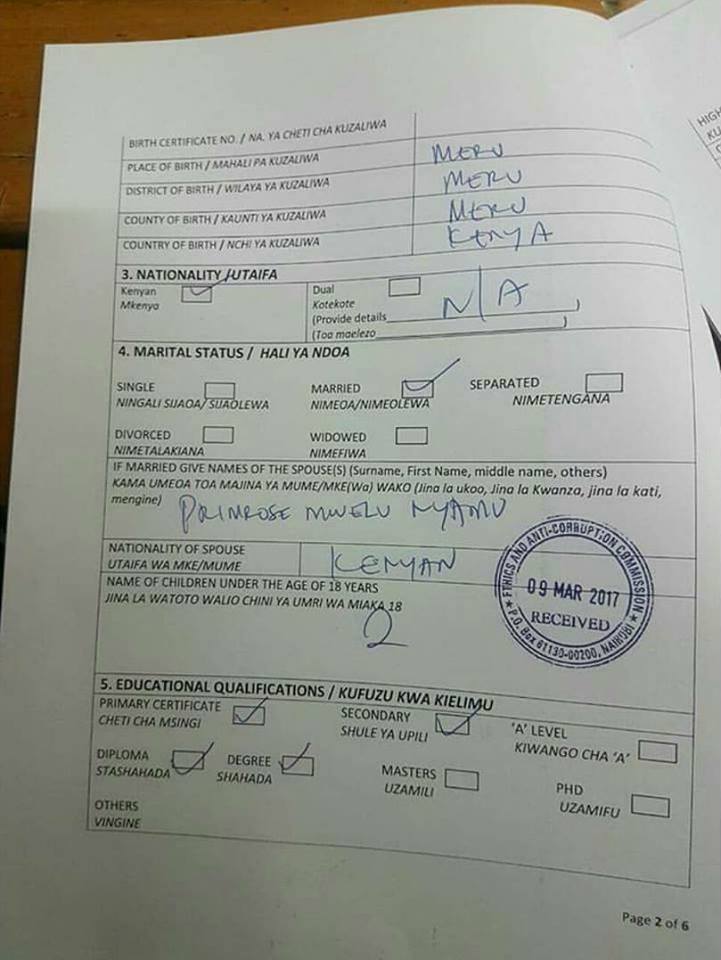 BIRTH CERTIFICATE NO. / NA. YA CHETI CHA KUZALIWA
PLACE OF BIRTH / MAHALI PA KUZALIWA MERU
DISTRICT OF BIRTH / WILAYA YA KUZALIWA MERU
COUNTY OF BIRTH / KAUNTI YA KUZALIWA MERU
COUNTRY OF BIRTH / NCHI YA KUZALIWA KENYA
3. NATIONALITY / UTAIFA
Kenyan
Mkenya
Dual
Kotekote
(Provide details )
(Toa maelezo )
N/A
4. MARITAL STATUS / HALI YA NDOA
SINGLE MARRIED SEPARATED
NINGALI SIJAOA/ SIJAOLEWA NIMEOA/NIMEOLEWA NIMETENGANA
DIVORCED WIDOWED
NIMETALAKIANA NIMEFIWA
IF MARRIED GIVE NAMES OF THE SPOUSE(S) (Surname, First Name, middle name, others)
KAMA UMEOA TOA MAJINA YA MUME/MKE(Wa) WAKO (Jina la ukoo, Jina la Kwanza, jina la kati,
mengine)
PRIMROSE MWELU NYAMU
NATIONALITY OF SPOUSE
UTAIFA WA MKE/MUME
KENYAN
NAME OF CHILDREN UNDER THE AGE OF 18 YEARS
JINA LA WATOTO WALIO CHINI YA UMRI WA MIAKA 18
2
ETHICS AND ANTI-CORRUPTION COMMISSION
09 MAR 2017
RECEIVED
P.O. Box 61130-00200, NAIROBI
5. EDUCATIONAL QUALIFICATIONS / KUFUZU KWA KIELIMU
PRIMARY CERTIFICATE SECONDARY 'A' LEVEL
CHETI CHA MSINGI SHULE YA UPILI KIWANGO CHA 'A'
DIPLOMA DEGREE MASTERS PHD
STASHAHADA SHAHADA UZAMILI UZAMIFU
OTHERS
VINGINE
Page 2 of 6
HIGH
KU